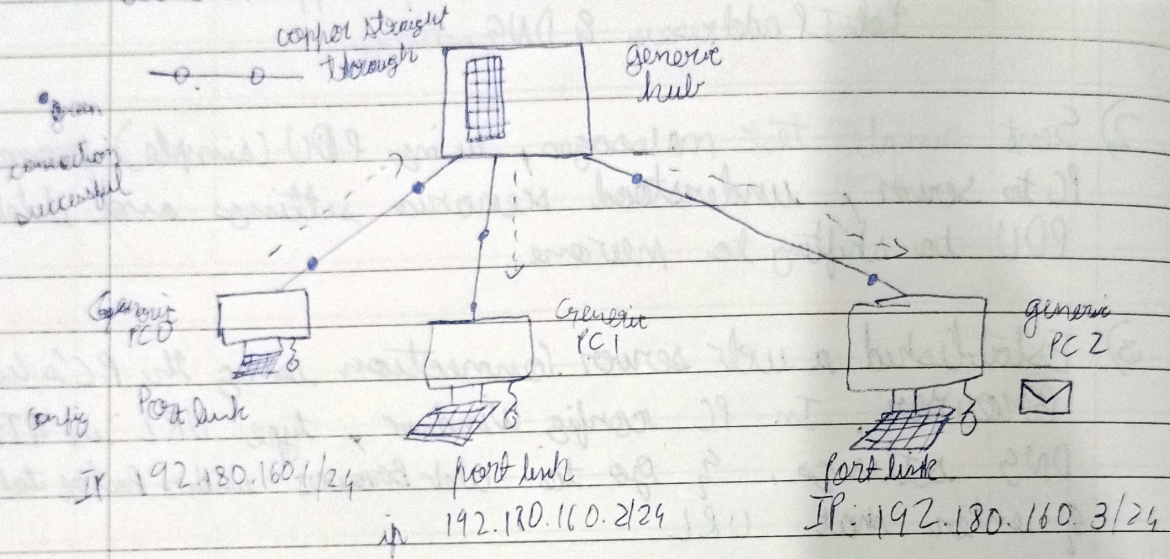 copper straight
through
generic
hub
green
connection
successful
Generic
PC0
Generic
PC1
generic
PC2
Config
Port link
IP 192.180.160.1/24
port link
ip 192.180.160.2/24
port link
IP: 192.180.160.3/24